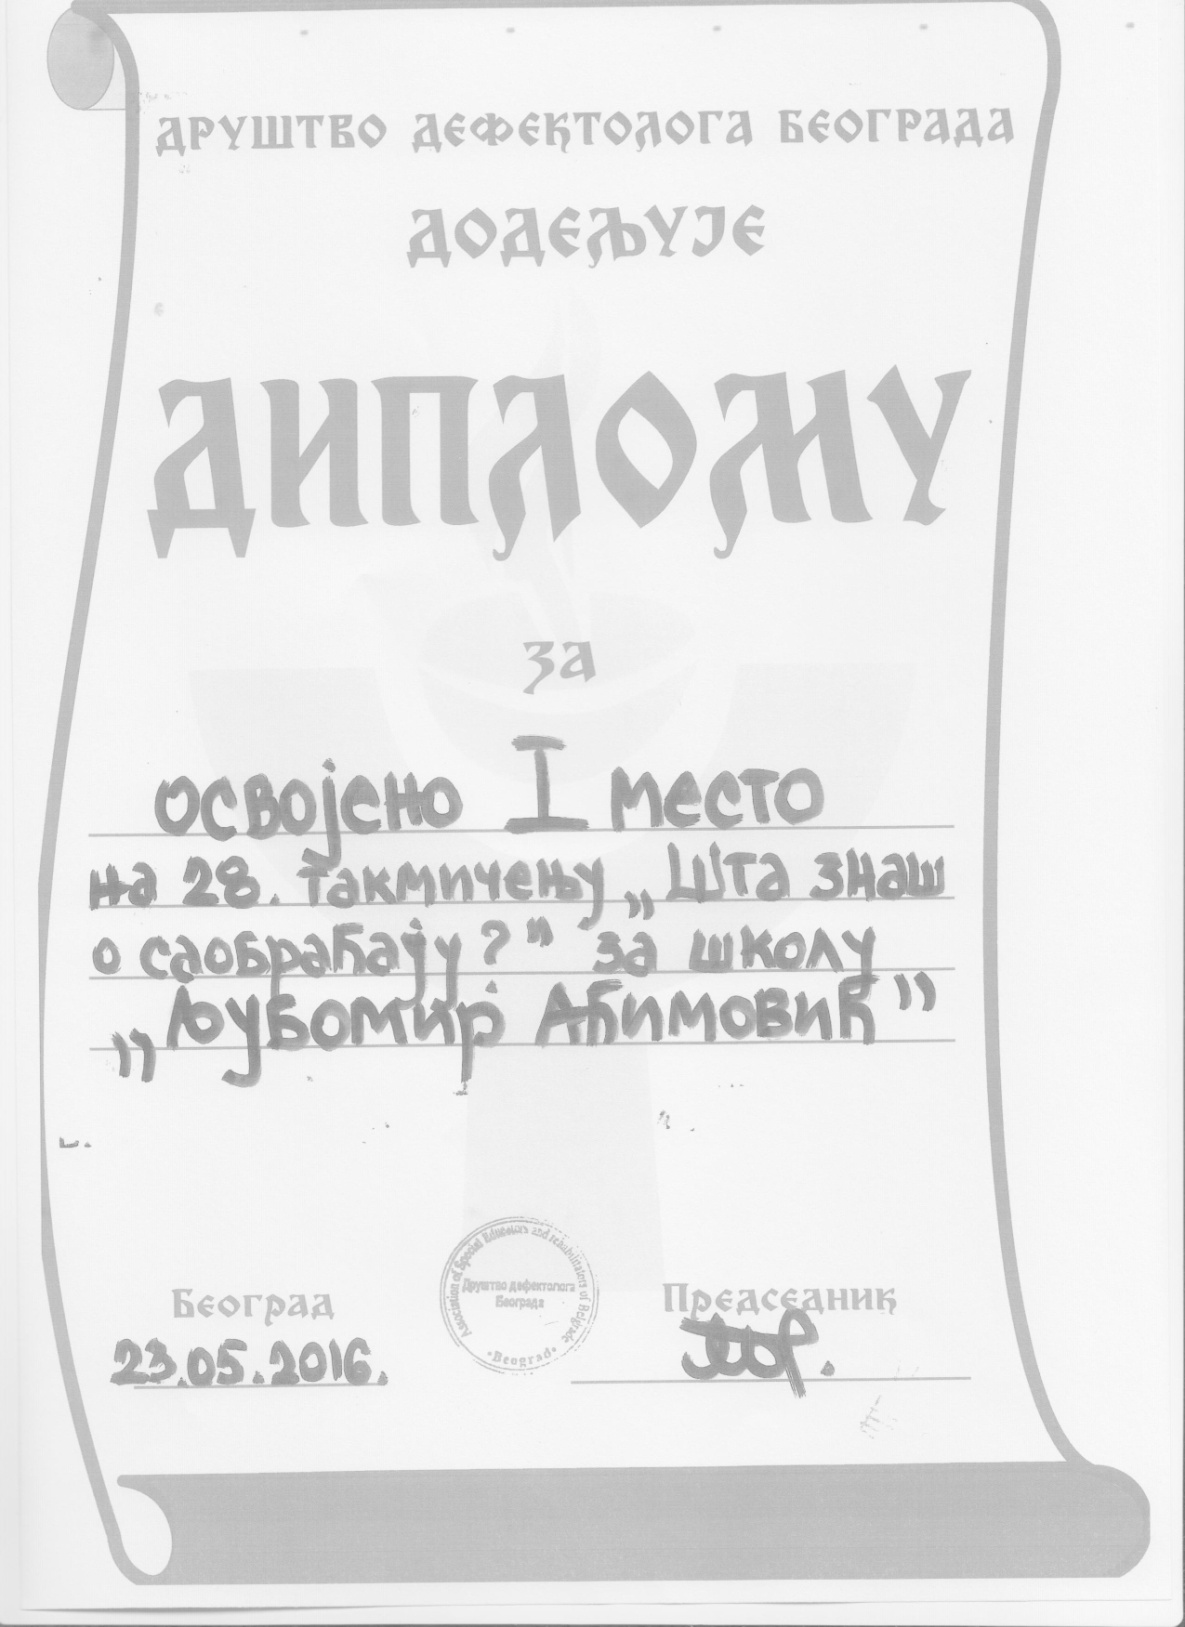 ДРУШТВО ДЕФЕКТОЛОГА БЕОГРАДА
ДОДЕЉУЈЕ
ДИПЛОМУ
за
освојено I место
на 28. такмичењу „Шта знаш
о саобраћају?” за школу
„Љубомир Аћимовић”
Association of Special Educators and rehabilitators of Belgrade
Друштво дефектолога
Београда
•Beograd•
Београд
Председник
23.05.2016.